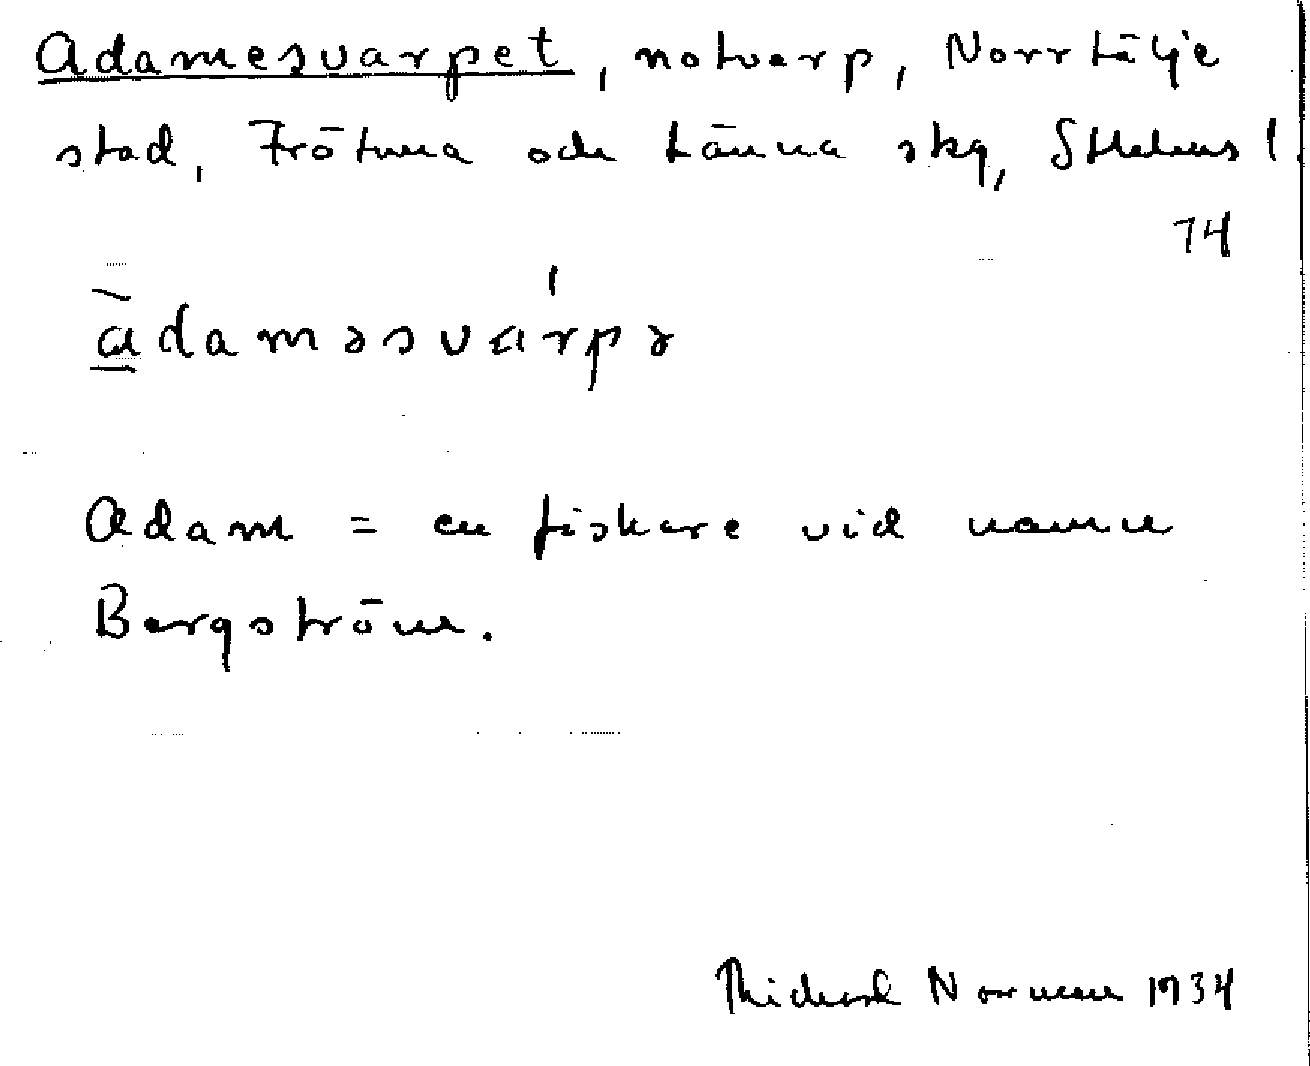 Adamesvarpet, notvarp, Norrtälje
stad, Frötuna och Länna skg, Sthlms l.
74
àdaməsvárpə
Adam = en fiskare vid namn
Bergström.
Richard Norman 1934